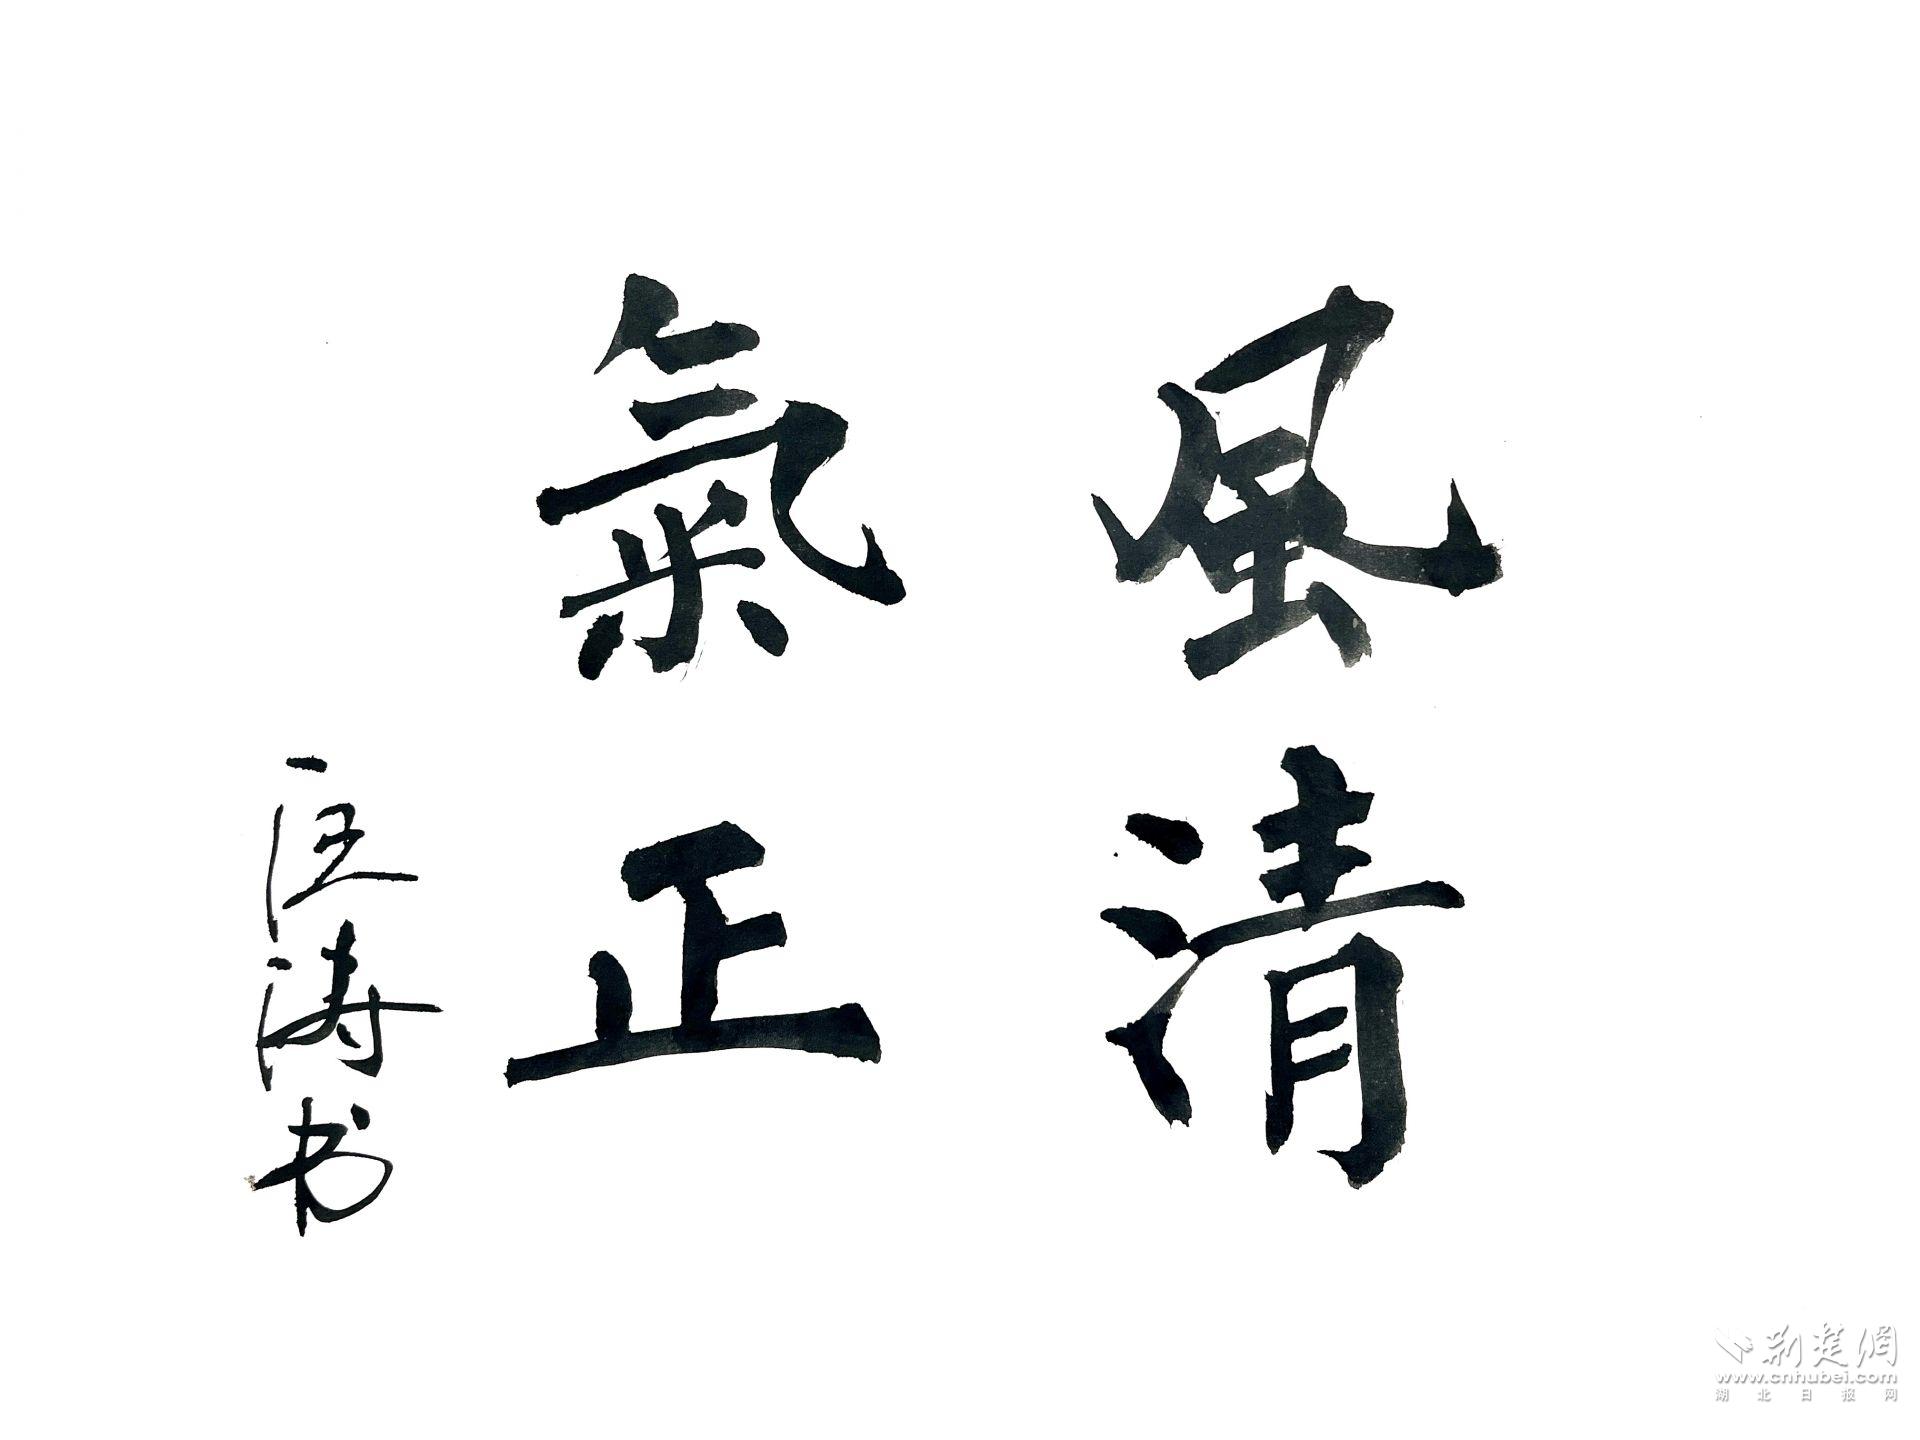 風清
氣正
汪涛书
荆楚網
www.cnhubei.com
湖北日报网